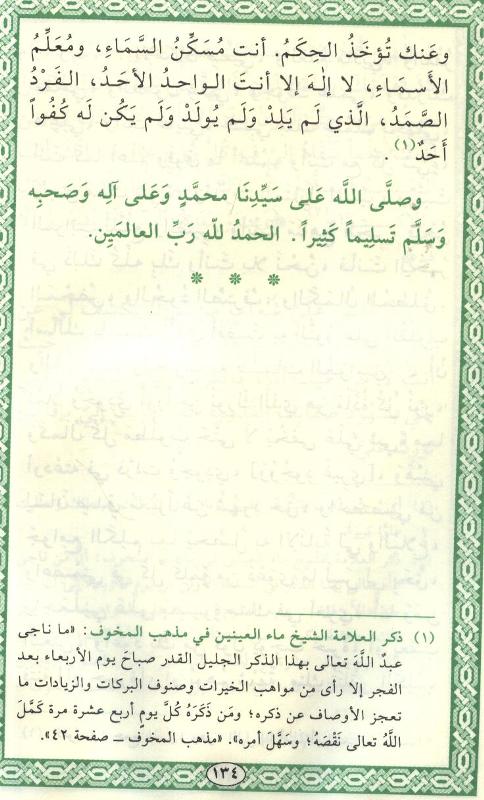 وعَنك تُؤخَذُ الحِكَمُ. أنت مُسَكِّنُ السَّمَاءِ، ومُعَلِّمُ
الأَسمَاءِ، لا إلهَ إلا أنتَ الواحدُ الأحَدُ، الفَردُ
الصَّمَدُ، الَّذي لَم يَلِدْ وَلَم يُولَدْ وَلَم يَكُن لَه كُفُواً
أَحَدٌ(١).
وصلَّى اللَّه عَلى سَيِّدِنَا محمَّدٍ وَعَلى آلِه وَصَحبِه
وَسَلَّم تَسلِيماً كَثِيراً. الحمدُ للّه رَبِّ العالمَين.
* * *
(١) ذكر العلامة الشيخ ماء العينين في مذهب المخوف: «ما ناجى
عبدٌ اللَّهَ تعالى بهذا الذكر الجليل القدر صباحَ يوم الأربعاء بعد
الفجر إلا رأى من مواهب الخيرات وصنوف البركات والزيادات ما
تعجز الأوصاف عن ذكره؛ ومَن ذَكَرَهُ كُلَّ يومٍ أربع عشرة مرة كَمَّلَ
اللَّهُ تعالى نَقْصَهُ؛ وسَهَّل أمره». «مذهب المخوف ــ صفحة ٤٢».
١٣٤